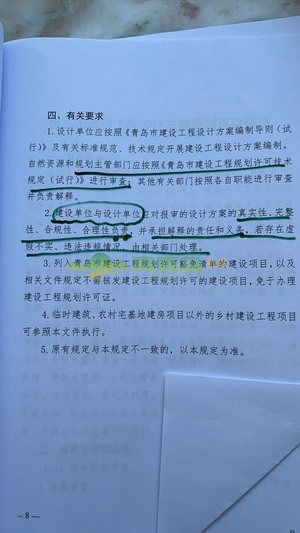 四、有关要求
1.设计单位应按照《青岛市建设工程设计方案编制导则（试
行）》及有关标准规范、技术规定开展建设工程设计方案编制。
自然资源和规划主管部门应按照《青岛市建设工程规划许可技术
规定（试行）》进行审查，其他有关部门按照各自职能进行审查
并负责解释。
2.建设单位与设计单位应对报审的设计方案的真实性、完整
性、合规性、合理性负责，并承担解释的责任和义务，若存在虚
假不实、违法违规情况，由相关部门处理。
3.列入青岛市建设工程规划许可豁免清单的建设项目，以及
相关文件规定不需核发建设工程规划许可的建设项目，免于办理
建设工程规划许可证。
4.临时建筑、农村宅基地建房项目以外的乡村建设工程项目
可参照本文件执行。
5.原有规定与本规定不一致的，以本规定为准。
—8—